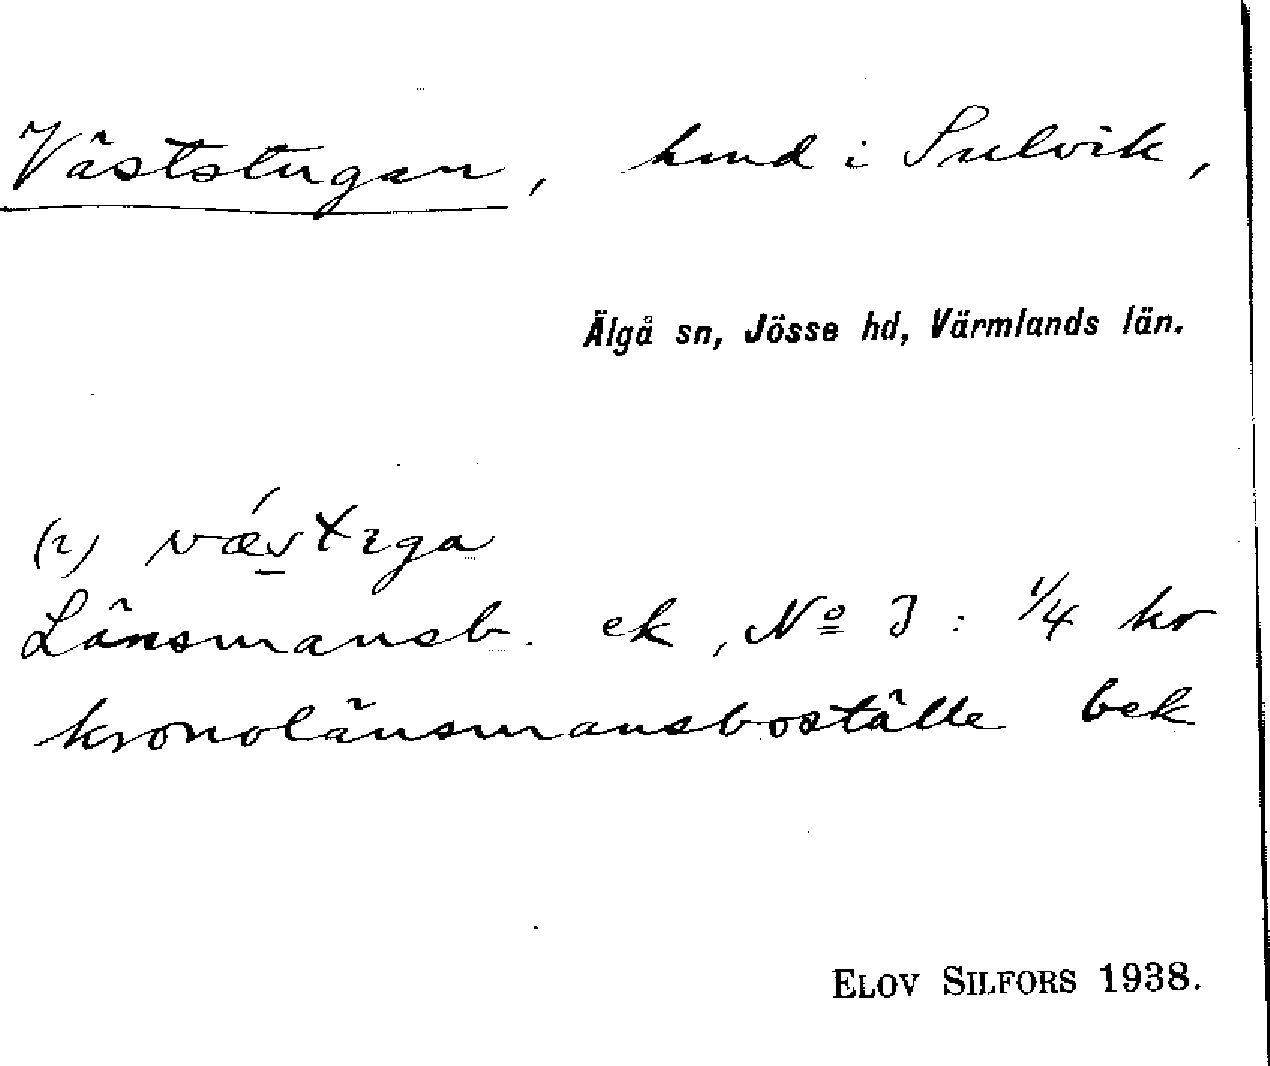 Väststugan, hmd i Sulvik,
Älgå sn, Jösse hd, Värmlands län.
(2)
Länsmansb. ek, No 3 : 1/4 kr
kronolänsmansboställe bek
ELOV SILFORS 1938.